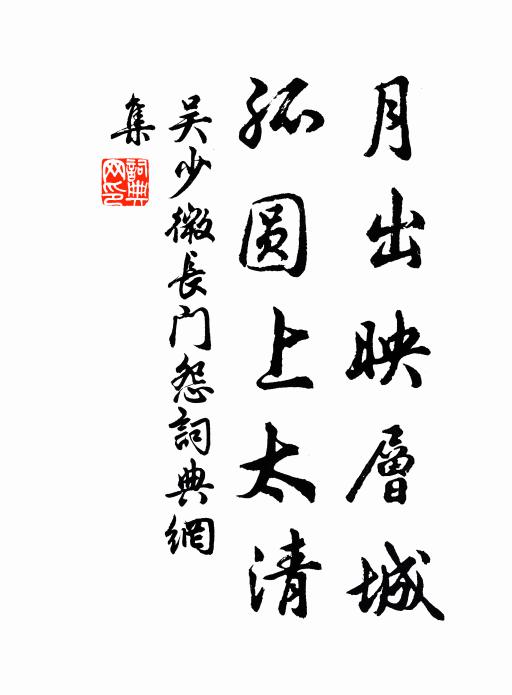 月出映層城
孤圆上太清
吴少微長门怨詞典網
集
詞典网印